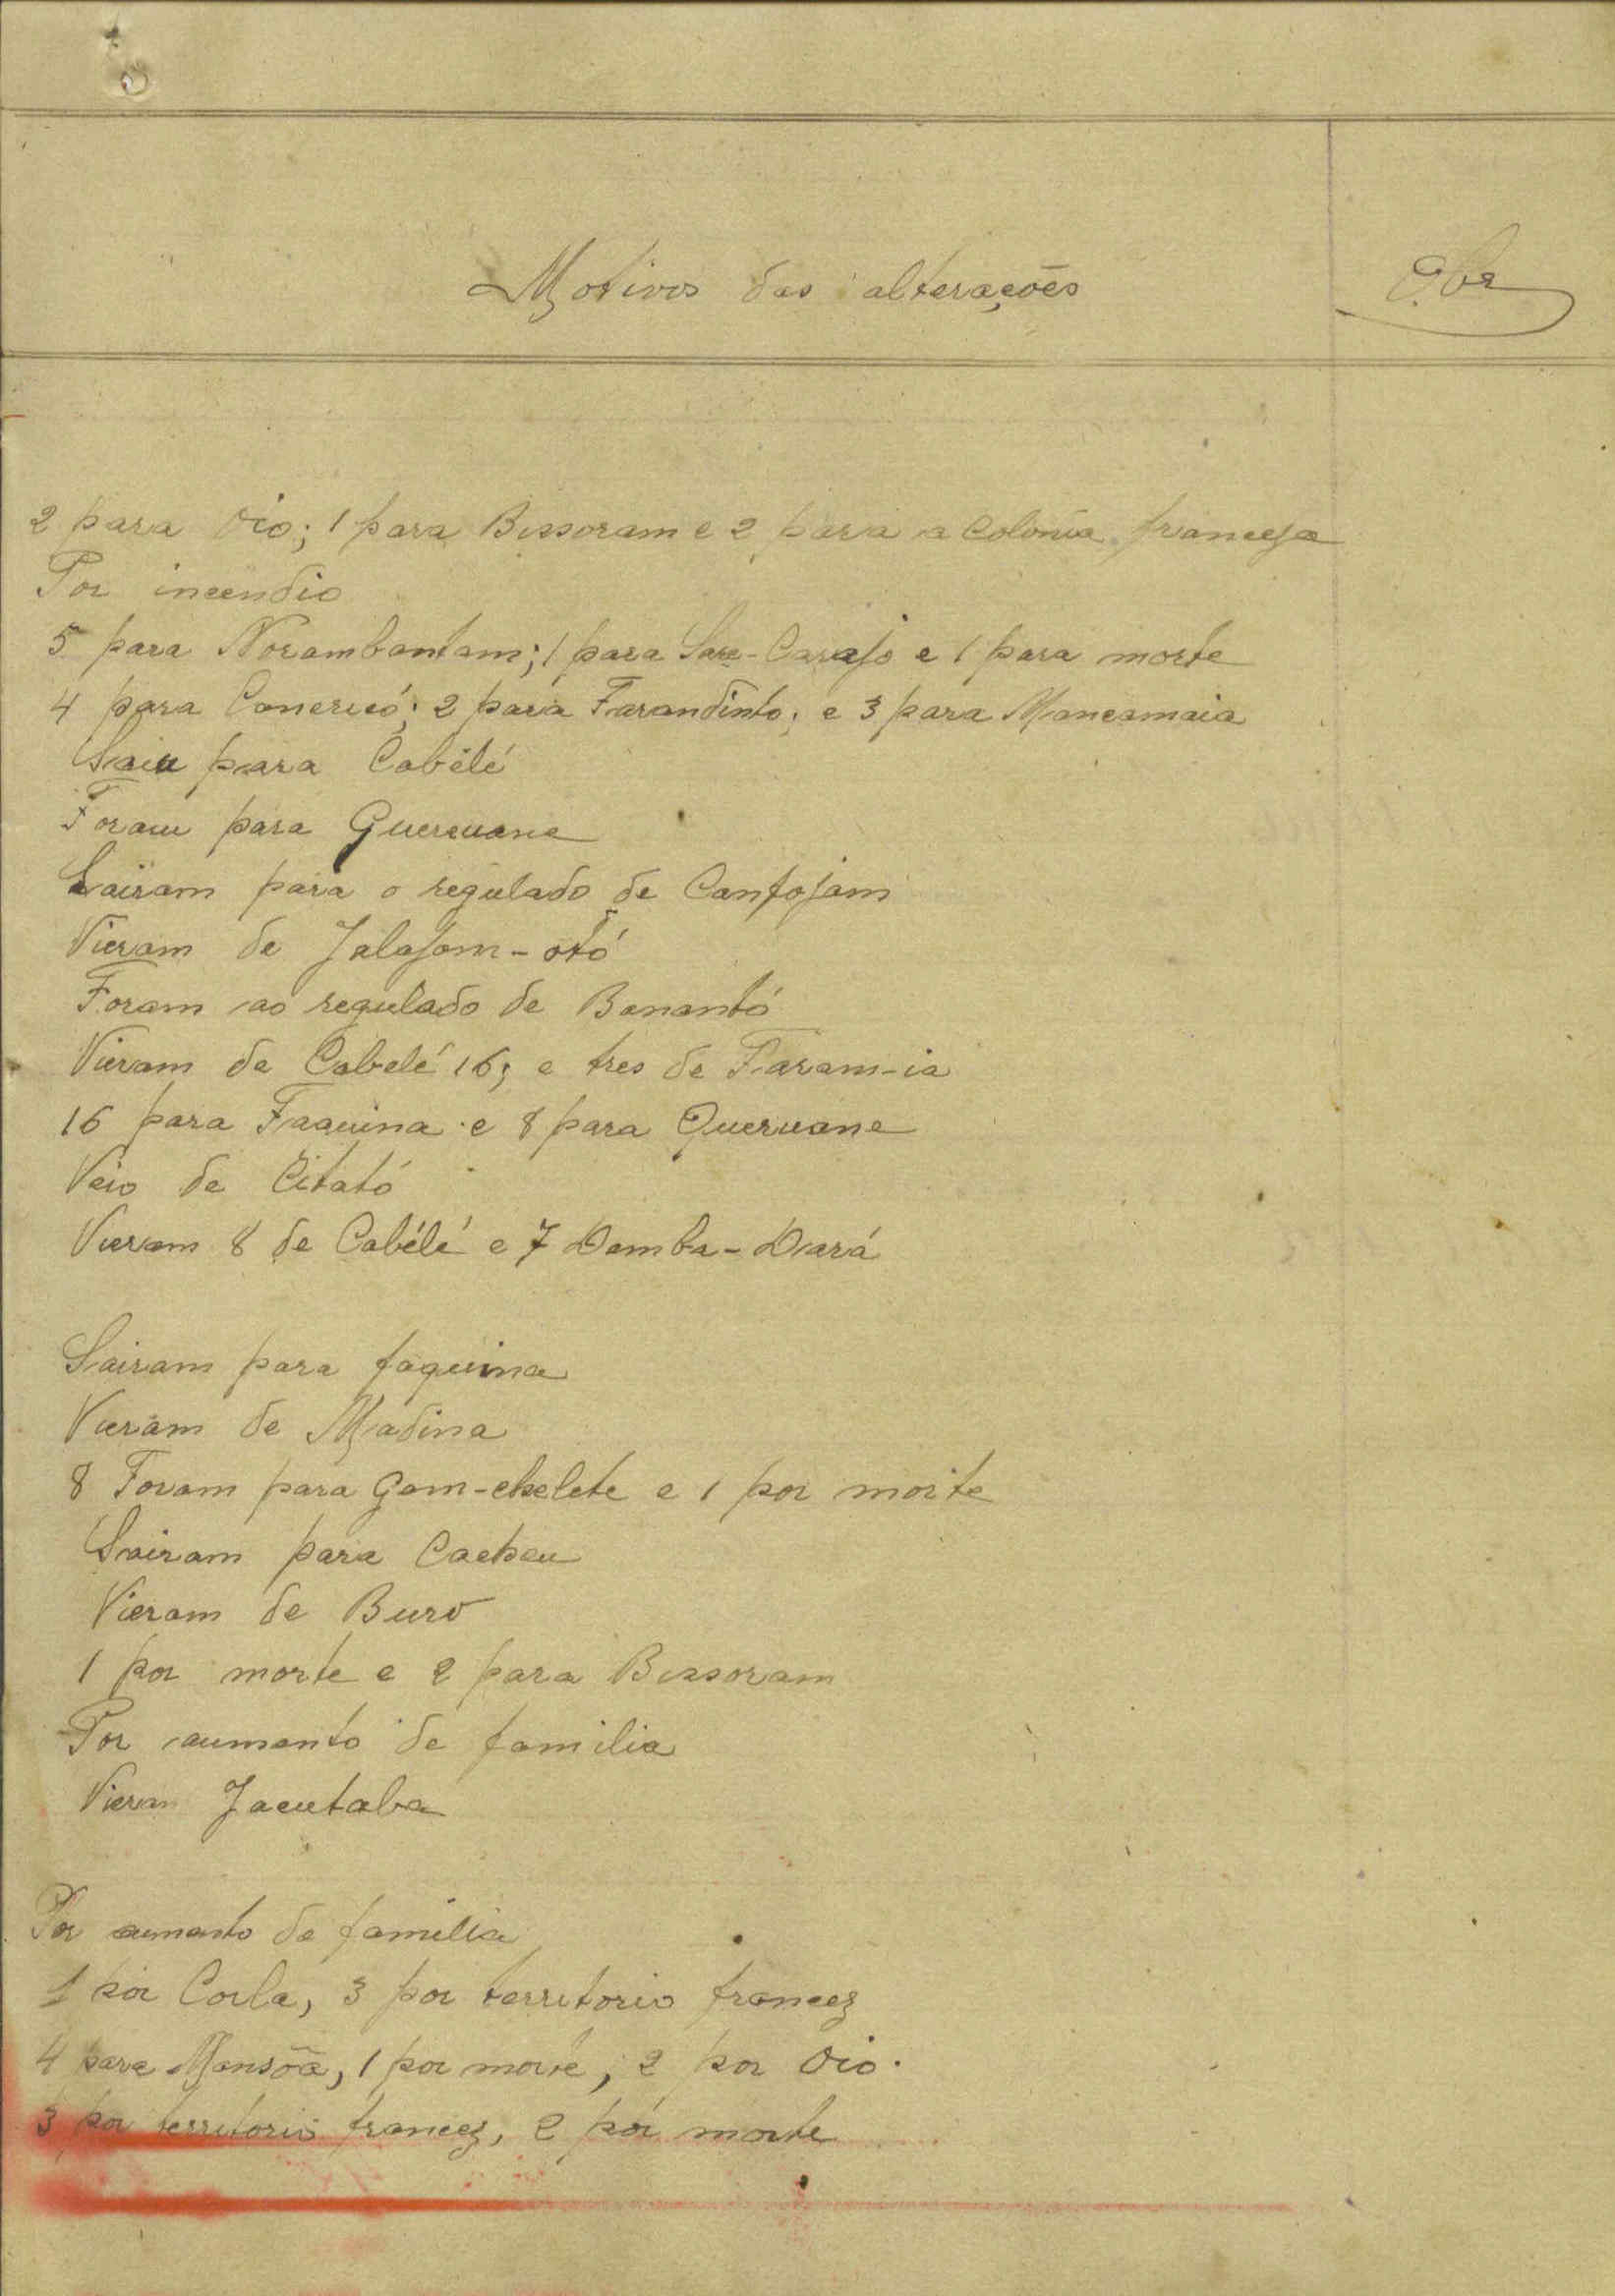 Motivos das alterações
Obs
2 para Oio; 1 para Bissoram e 2 para a Colonia franceza
Por incendio
5 para Norambantam; 1 para Sare-Carajo e 1 para morte
4 para Canericó; 2 para Farandinto; e 3 para Manesmaia
Saiu para Cabélé
Foram para Queruane
Sairam para o regulado de Canfojam
Vieram de Jalajom-otó
Foram ao regulado de Banantó
Vieram de Cabelé 16; e tres de Faram-ia
16 para Faquina e 8 para Queruane
Veio de Citató
Vieram 8 de Cabélé e 7 Demba-Diará
Sairam para faquina
Vieram de Madina
8 Foram para Gam-chelete e 1 por morte
Sairam para Cacheu
Vieram de Buro
1 por morte e 2 para Bissoram
Por aumento de familia
Vieram Jacutaba
Por aumento de familia
1 por Corla, 3 por territorio francez
4 para Mansõa, 1 por morte, 2 por Oio.
3 por territorio francez, 2 por morte